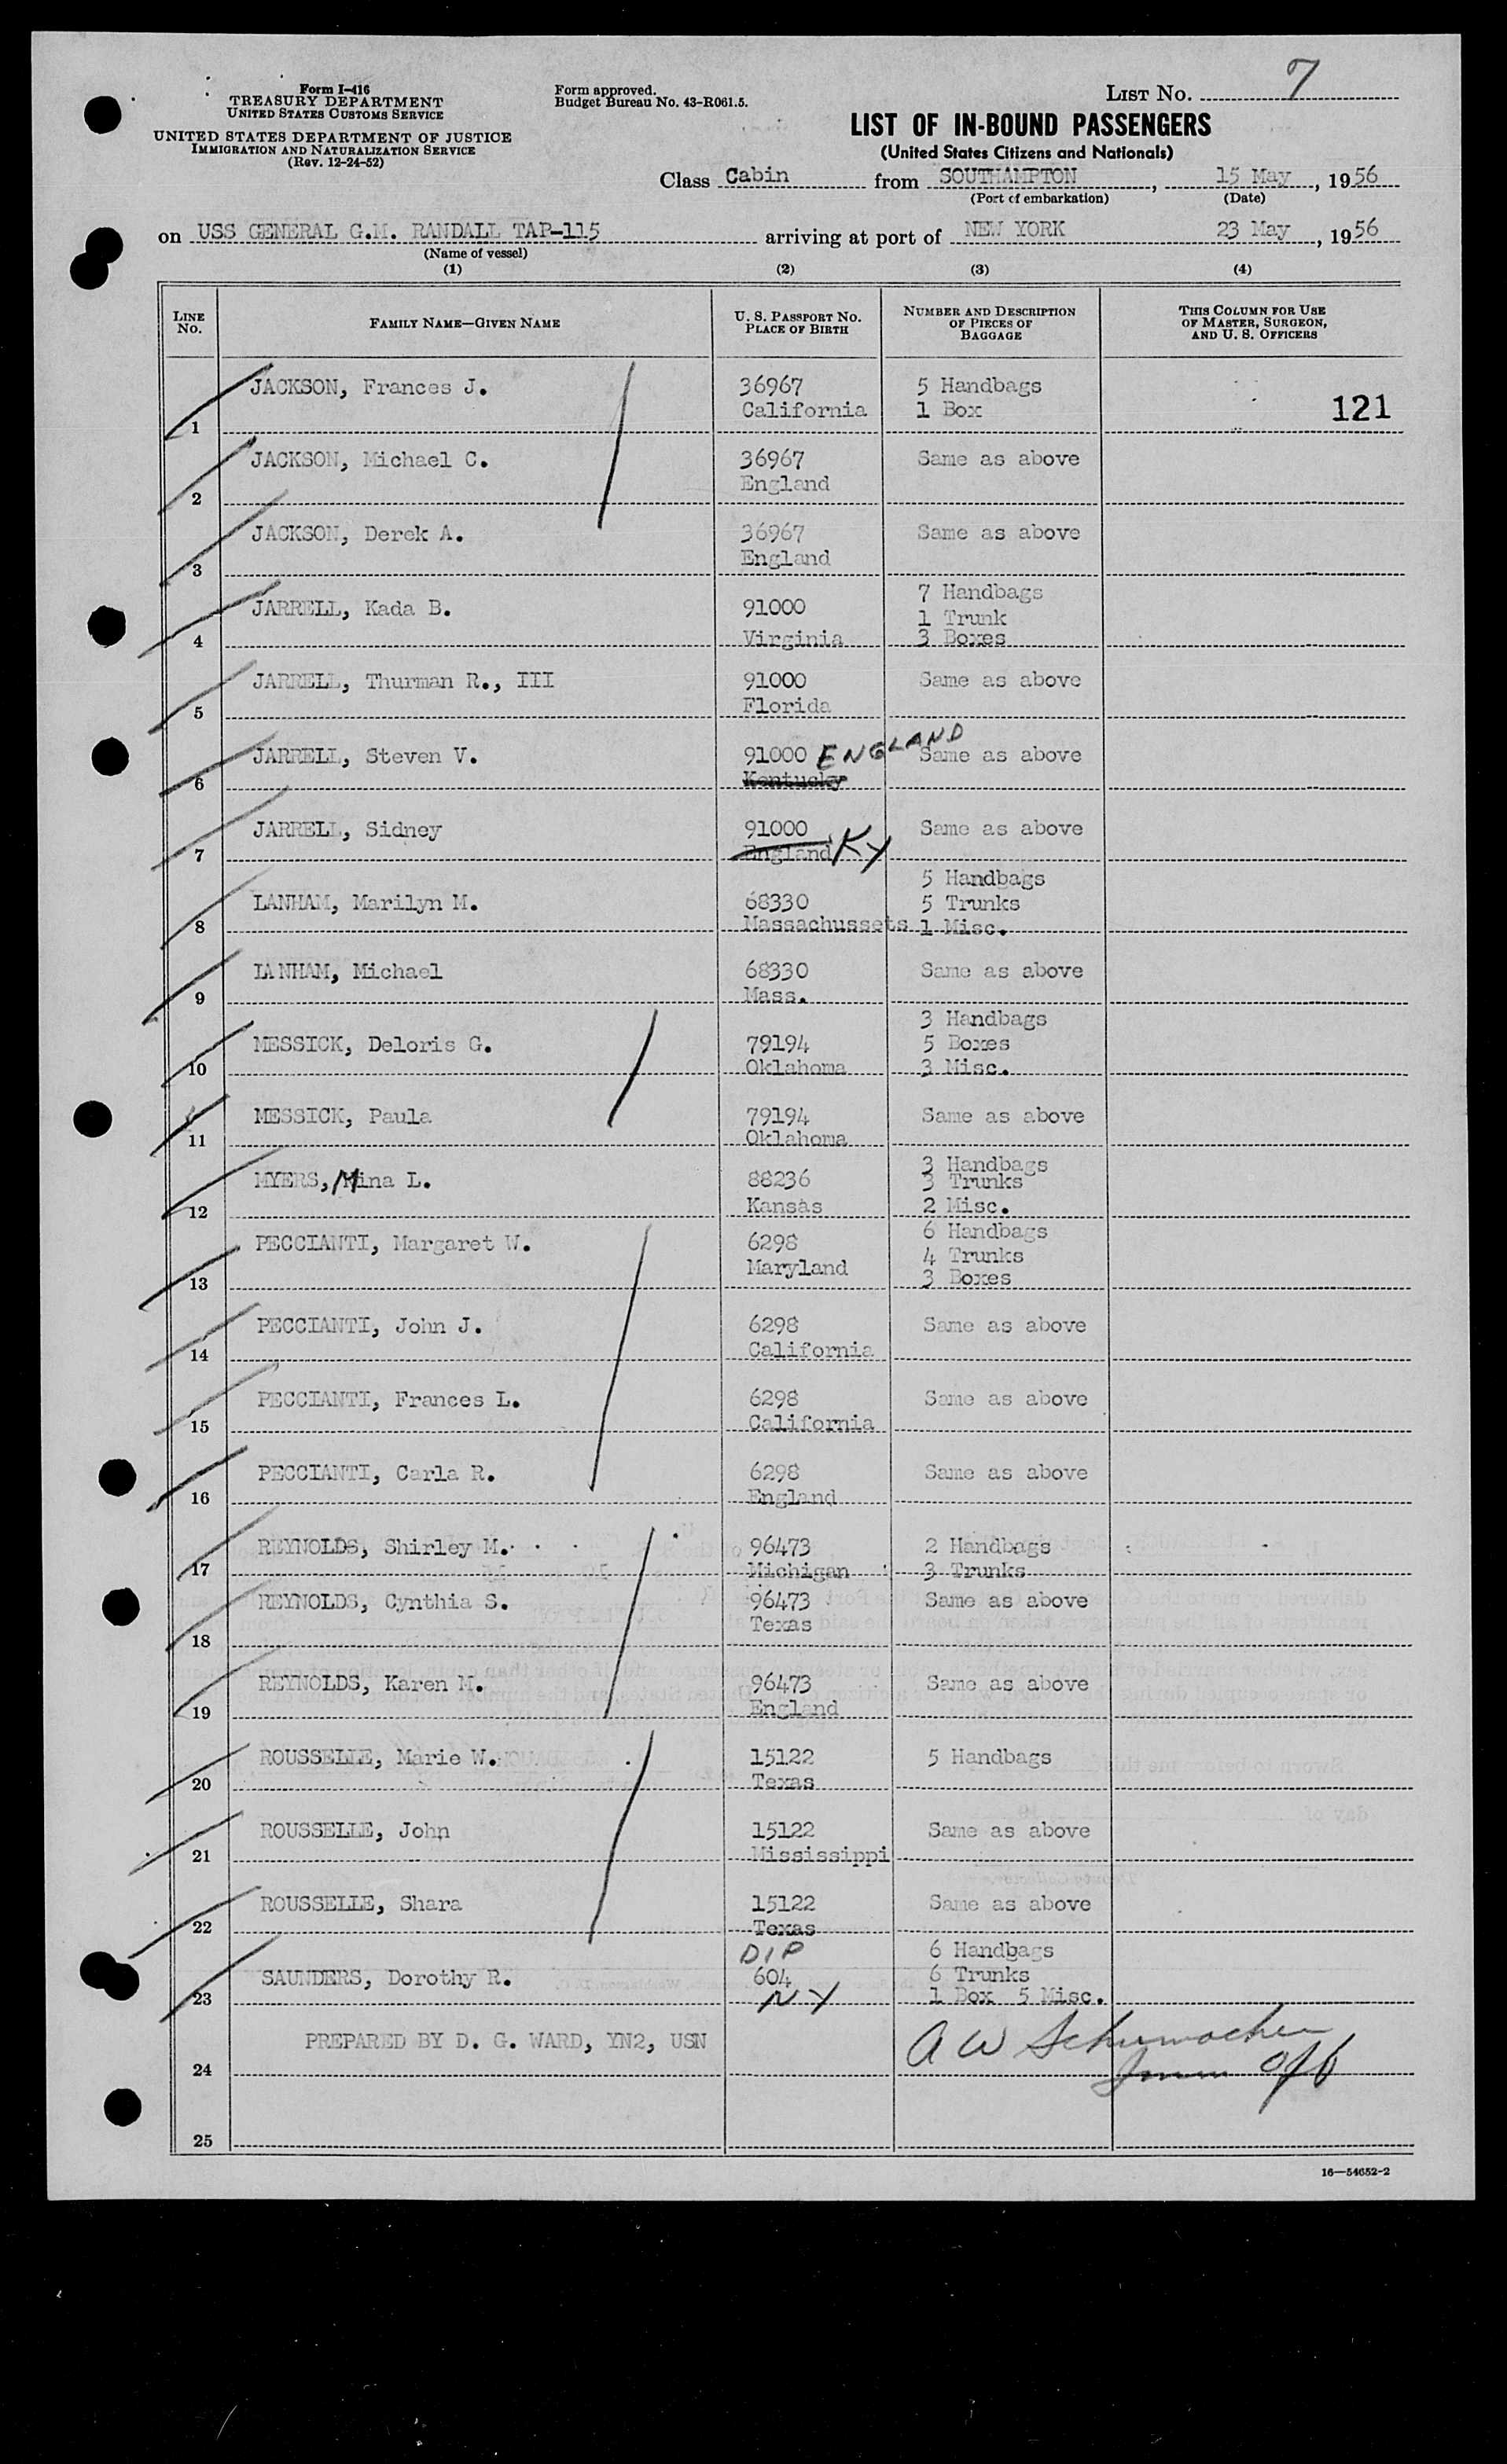 Form I-416
TREASURY DEPARTMENT
UNITED STATES CUSTOMS SERVICE
UNITED STATES DEPARTMENT OF JUSTICE
IMMIGRATION AND NATURALIZATION SERVICE
(Rev. 12-24-52)
Form approved.
Budget Bureau No. 43-R061.5.
LIST NO. 7
LIST OF IN-BOUND PASSENGERS
(United States Citizens and Nationals)
Class Cabin from SOUTHAMPTON, 15 May, 1956
(Port of embarkation) (Date)
on USS GENERAL G.M. RANDALL TAP-115 arriving at port of NEW YORK 23 May, 1956
(Name of vessel)
(1) (2) (3) (4)
LINE NO. FAMILY NAME—GIVEN NAME U. S. PASSPORT NO. PLACE OF BIRTH NUMBER AND DESCRIPTION OF PIECES OF BAGGAGE THIS COLUMN FOR USE OF MASTER, SURGEON, AND U. S. OFFICERS
JACKSON, Frances J. 36967 5 Handbags
1 California 1 Box 121
JACKSON, Michael C. 36967 Same as above
2 England
JACKSON, Derek A. 36967 Same as above
3 England
7 Handbags
JARRELL, Kada B. 91000 1 Trunk
4 Virginia 3 Boxes
JARRELL, Thurman R., III 91000 Same as above
5 Florida
JARRELL, Steven V. 91000 ENGLAND Same as above
6 Kentucky
JARRELL, Sidney 91000 Same as above
7 England KY
5 Handbags
LANHAM, Marilyn M. 68330 5 Trunks
8 Massachussets 1 Misc.
LANHAM, Michael 68330 Same as above
9 Mass.
3 Handbags
MESSICK, Deloris G. 79194 5 Boxes
10 Oklahoma 3 Misc.
MESSICK, Paula 79194 Same as above
11 Oklahoma
3 Handbags
MYERS, Mina L. 88236 3 Trunks
12 Kansas 2 Misc.
PECCIANTI, Margaret W. 6298 6 Handbags
Maryland 4 Trunks
13 3 Boxes
PECCIANTI, John J. 6298 Same as above
14 California
PECCIANTI, Frances L. 6298 Same as above
15 California
PECCIANTI, Carla R. 6298 Same as above
16 England
REYNOLDS, Shirley M. 96473 2 Handbags
17 Michigan 3 Trunks
REYNOLDS, Cynthia S. 96473 Same as above
18 Texas
REYNOLDS, Karen M. 96473 Same as above
19 England
ROUSSELLE, Marie W. 15122 5 Handbags
20 Texas
ROUSSELLE, John 15122 Same as above
21 Mississippi
ROUSSELLE, Shara 15122 Same as above
22 Texas
DIP 6 Handbags
SAUNDERS, Dorothy R. 604 6 Trunks
23 NY 1 Box 5 Misc.
PREPARED BY D. G. WARD, YN2, USN A W Schumacher
24 Imm Off
25
16—54652-2